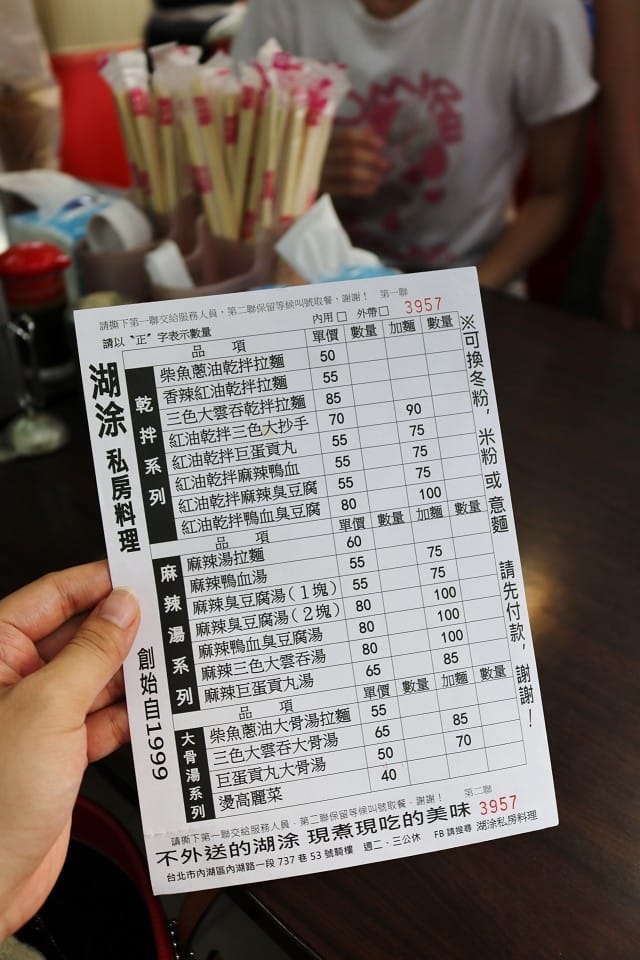 請撕下第一聯交給服務人員，第二聯保留等候叫號取餐，謝謝！ 第一聯
3957
請以〝正〞字表示數量 內用□ 外帶□
湖涂 私房料理
創始自1999
乾拌系列
品項 單價 數量 加麵 數量
柴魚蔥油乾拌拉麵 50
香辣紅油乾拌拉麵 55
三色大雲吞乾拌拉麵 85
紅油乾拌三色大抄手 70 90
紅油乾拌巨蛋貢丸 55 75
紅油乾拌麻辣鴨血 55 75
紅油乾拌麻辣臭豆腐 55 75
紅油乾拌鴨血臭豆腐 80 100
麻辣湯系列
品項 單價 數量 加麵 數量
麻辣湯拉麵 60
麻辣鴨血湯 55 75
麻辣臭豆腐湯(1塊) 55 75
麻辣臭豆腐湯(2塊) 80 100
麻辣鴨血臭豆腐湯 80 100
麻辣三色大雲吞湯 80 100
麻辣巨蛋貢丸湯 65 85
大骨湯系列
品項 單價 數量 加麵 數量
柴魚蔥油大骨湯拉麵 55
三色大雲吞大骨湯 65 85
巨蛋貢丸大骨湯 50 70
燙高麗菜 40
※可換冬粉，米粉或意麵 請先付款，謝謝！
請撕下第一聯交給服務人員，第二聯保留等候叫號取餐，謝謝！ 第二聯
不外送的湖涂 現煮現吃的美味 3957
台北市內湖區內湖路一段737巷53號騎樓 週二、三公休 FB請搜尋 湖涂私房料理